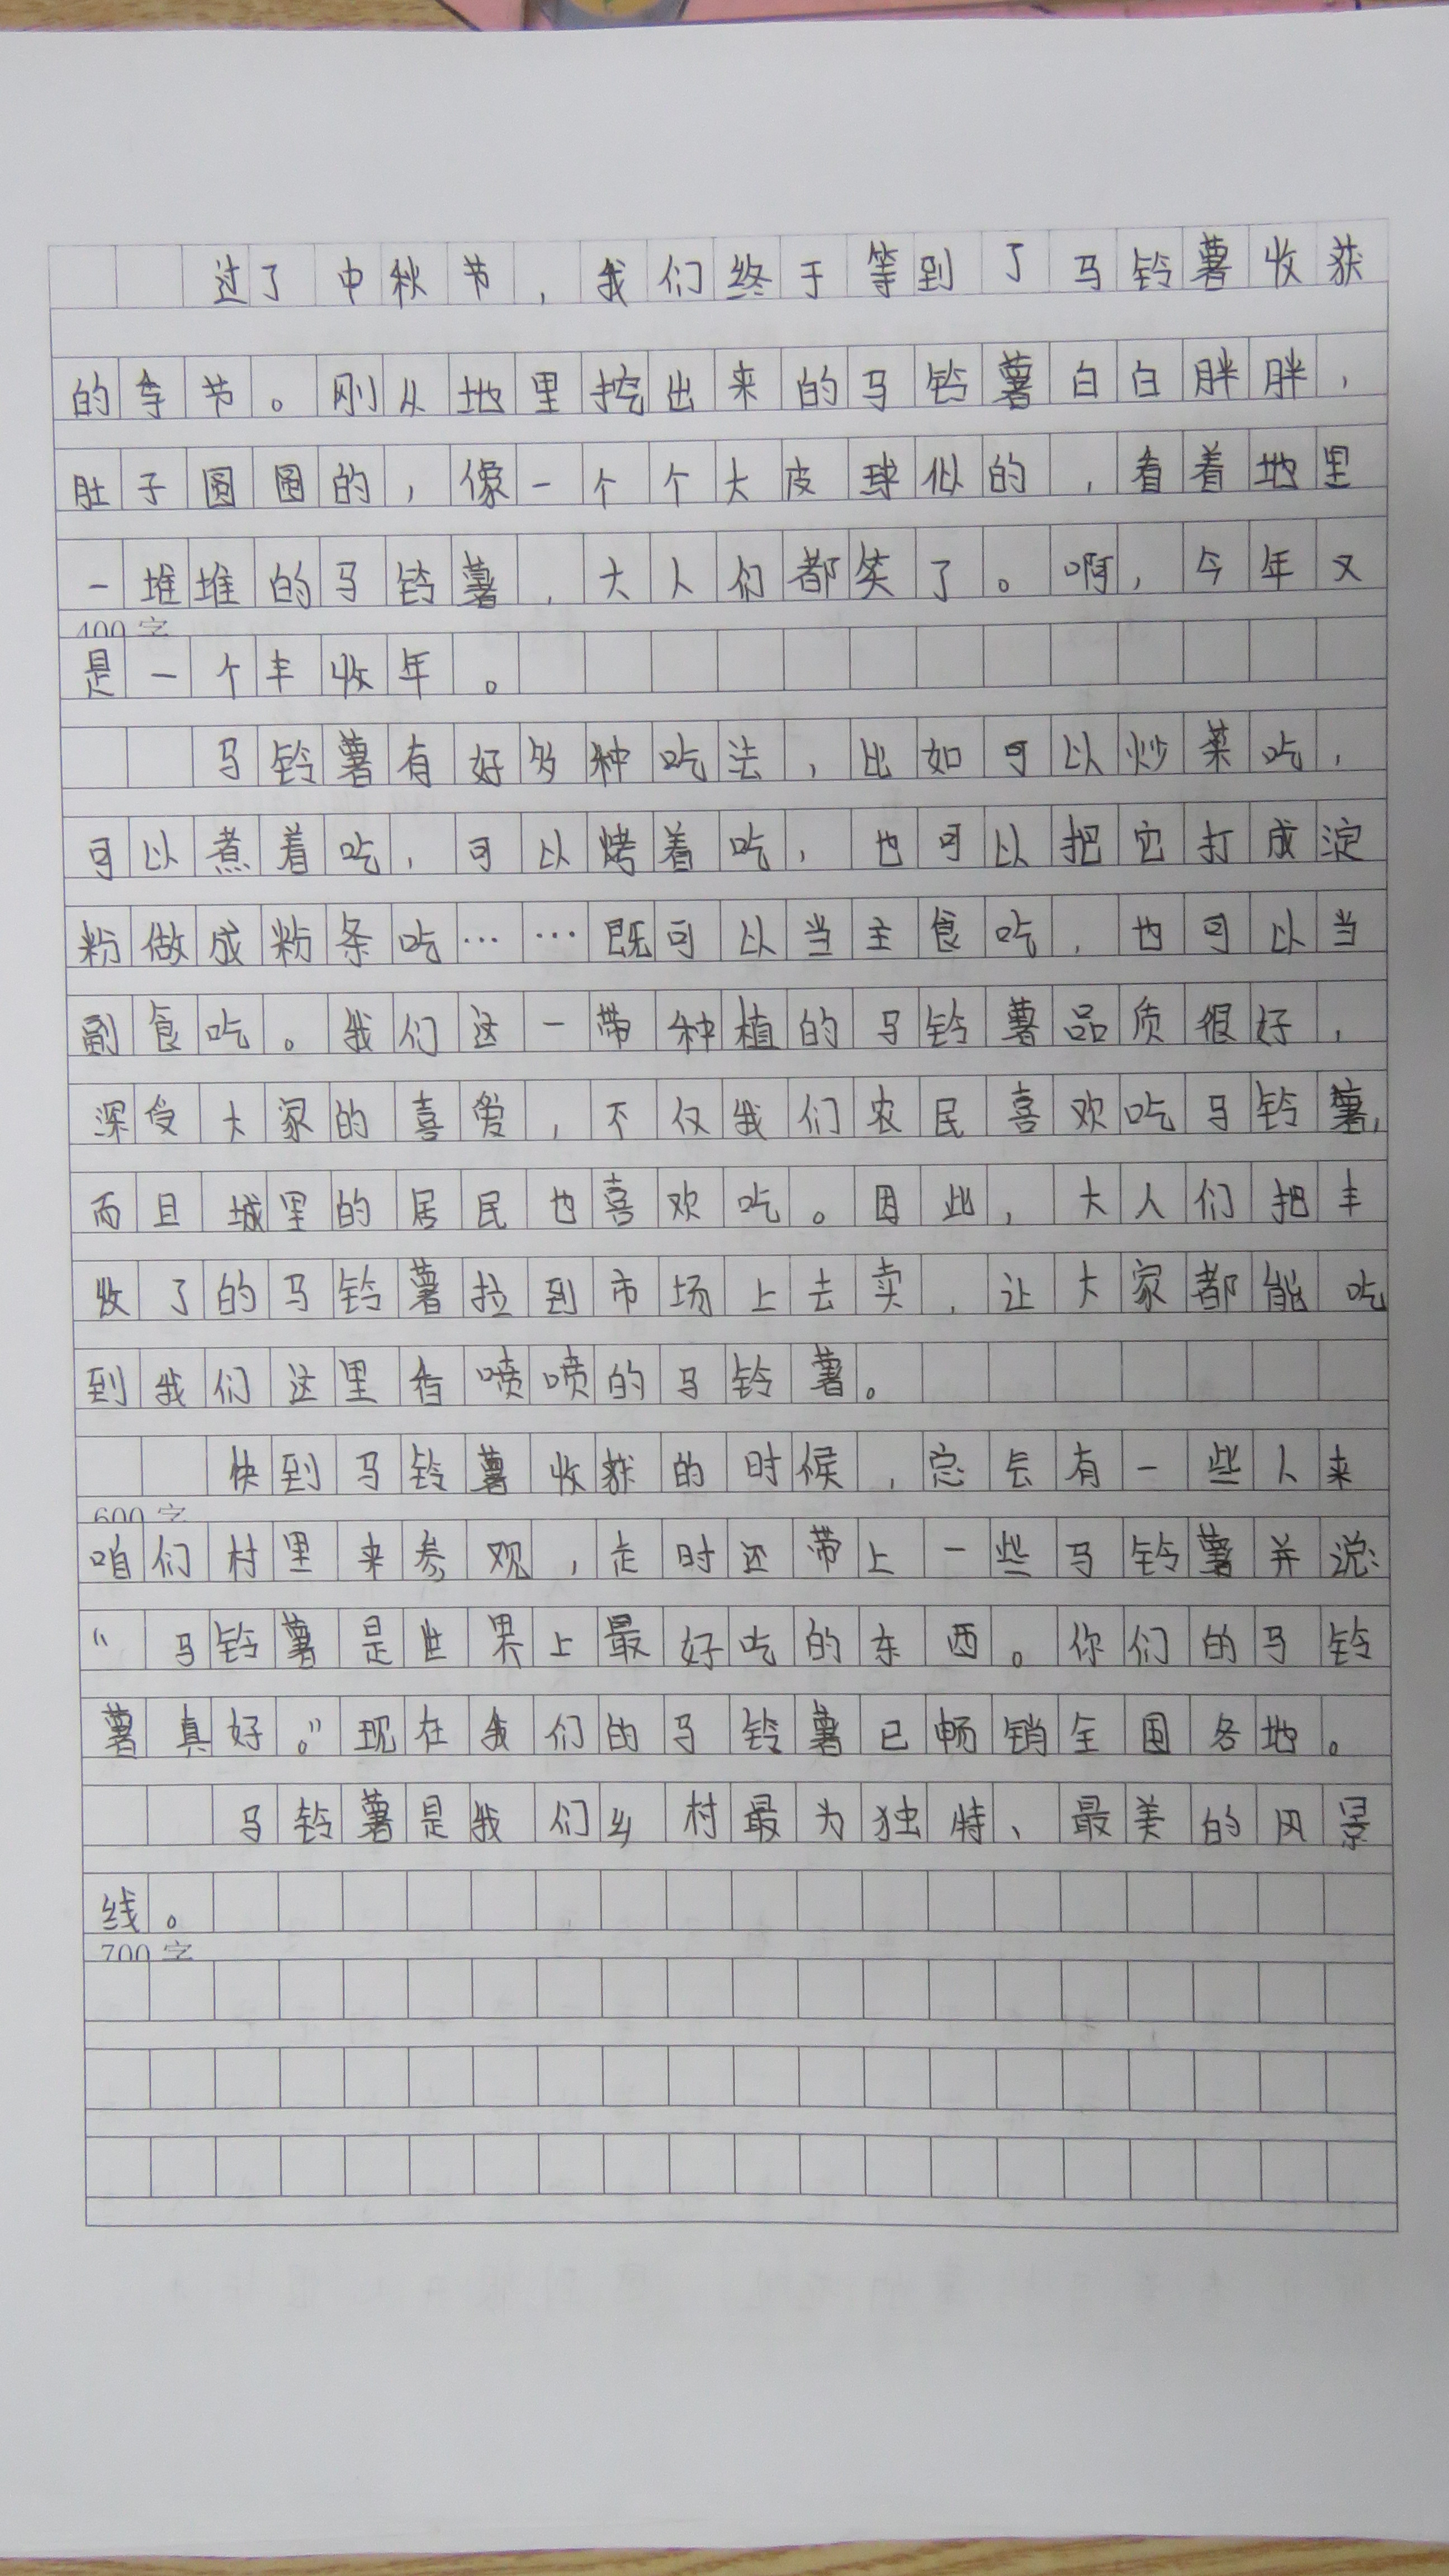 过了中秋节,我们终于等到了马铃薯收获
的季节。刚从地里挖出来的马铃薯白白胖胖,
肚子圆圆的,像一个个大皮球似的,看着地里
一堆堆的马铃薯,大人们都笑了。啊,今年又
400字
是一个丰收年。
马铃薯有好多种吃法,比如可以炒菜吃,
可以煮着吃,可以烤着吃,也可以把它打成淀
粉做成粉条吃……既可以当主食吃,也可以当
副食吃。我们这一带种植的马铃薯品质很好,
深受大家的喜爱,不仅我们农民喜欢吃马铃薯,
而且城里的居民也喜欢吃。因此,大人们把丰
收了的马铃薯拉到市场上去卖,让大家都能吃
到我们这里香喷喷的马铃薯。
快到马铃薯收获的时候,总会有一些人来
600字
咱们村里来参观,走时还带上一些马铃薯并说:
“马铃薯是世界上最好吃的东西。你们的马铃
薯真好。”现在我们的马铃薯已畅销全国各地。
马铃薯是我们乡村最为独特、最美的风景
线。
700字